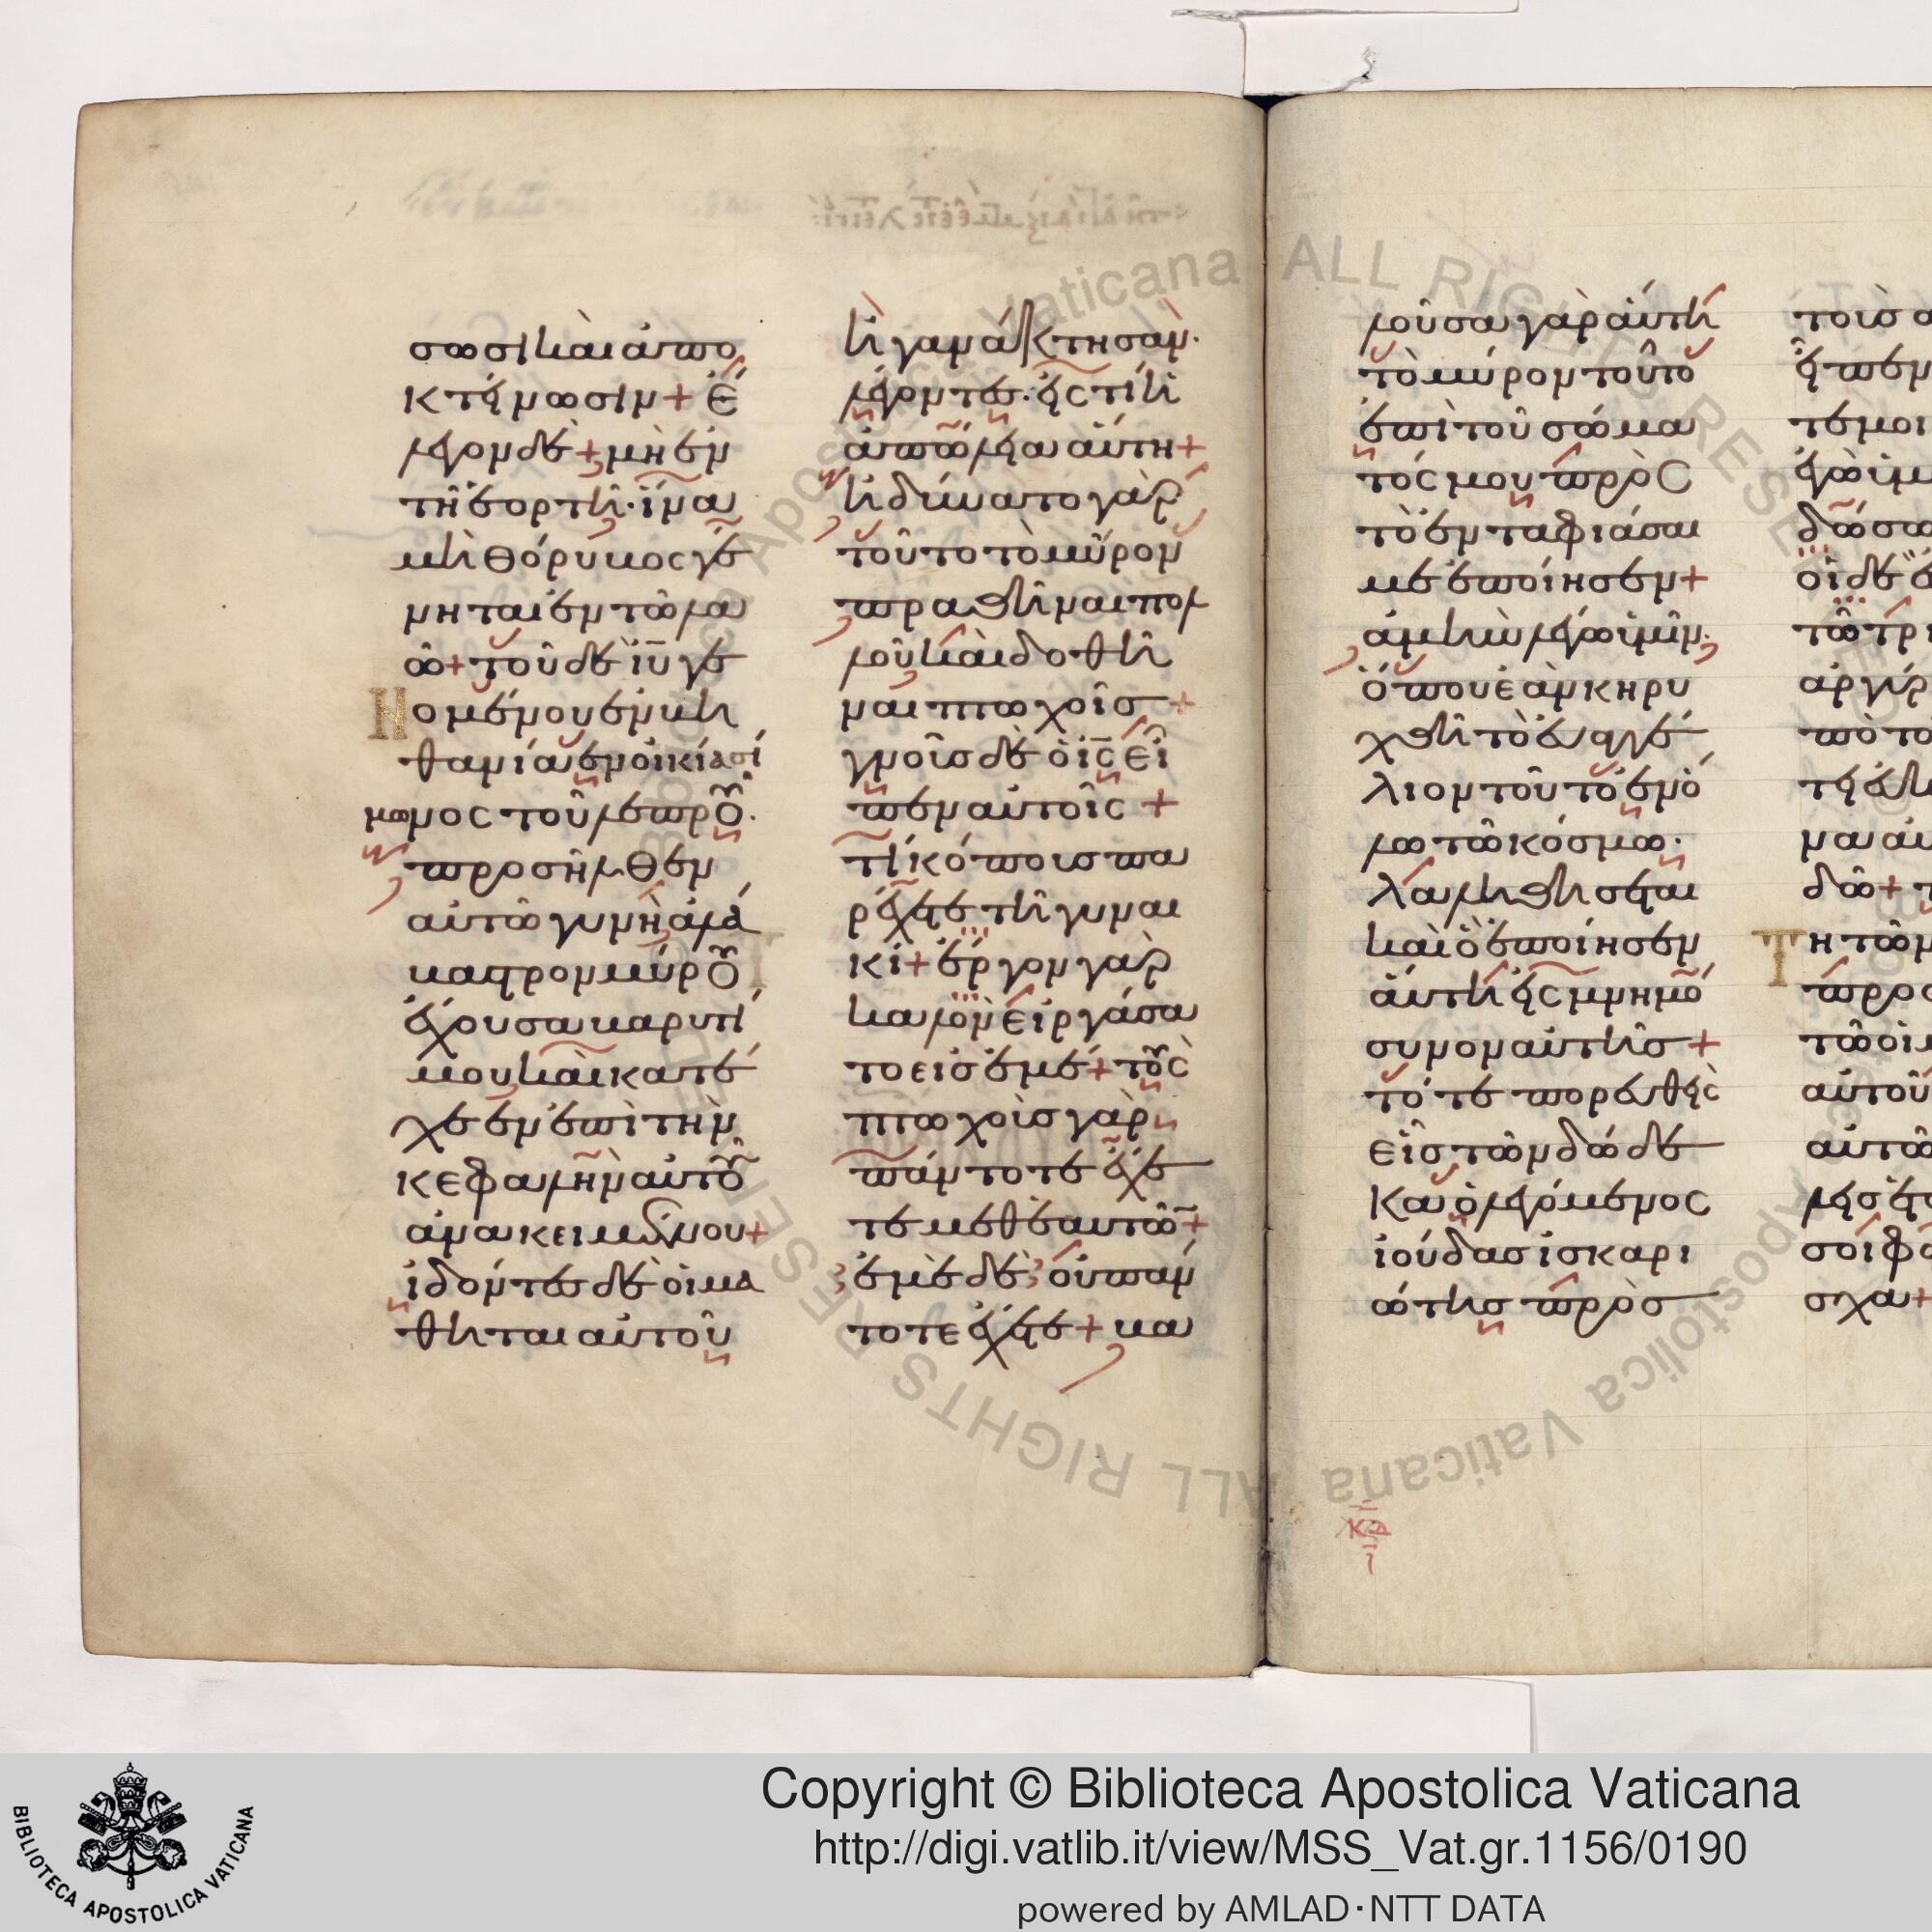 σωσι καὶ ἀπο
κτείνωσιν + ἔ
λεγον δὲ + μὴ ἐν
τῆ ἑορτῆ· ἵνα
μὴ θόρυβος γέ
νηται ἐν τῶ λα
ῶ + τοῦ δὲ ιυ γε
νομένου ἐν βη
θανία ἐν οἰκία σί
μωνος τοῦ λεπροῦ·
προσῆλθεν
αὐτῶ γυνὴ ἀλά
βαστρον μύρου
ἔχουσα βαρυτί
μου καὶ κατέ
χεεν ἐπὶ τὴν
κεφαλὴν αὐτοῦ
ἀνακειμένου +
ἰδόντες δὲ οἱ μα
θηταὶ αὐτοῦ
ἠγανάκτησαν·
λέγοντες· εἰς τί ἡ
ἀπώλεια αὕτη +
ἠδύνατο γὰρ
τοῦτο τὸ μύρον
πραθῆναι πολ
λοῦ καὶ δοθῆ
ναι πτωχοῖς +
γνοῦς δὲ ὁ ις εἶ
πεν αὐτοῖς +
τί κόπους πα
ρέχετε τῆ γυναι
κί + ἔργον γὰρ
καλὸν εἰργάσα
το εἰς ἐμέ + τοὺς
πτωχοὺς γὰρ
πάντοτε ἔχε
τε μεθ' ἑαυτῶν +
ἐμὲ δὲ οὐ πάν
τοτε ἔχετε + βα
λοῦσα γὰρ αὕτη
τὸ μύρον τοῦτο
ἐπὶ τοῦ σώμα
τός μου πρὸς
τὸ ἐνταφιάσαι
με ἐποίησεν +
ἀμὴν λέγω ὑμῖν·
ὅπου ἐὰν κηρυ
χθῆ τὸ εὐαγγέ
λιον τοῦτο ἐν ὅ
λω τῶ κόσμω·
λαληθήσεται
καὶ ὃ ἐποίησεν
αὕτη εἰς μνημό
συνον αὐτῆς +
τότε πορευθεὶς
εἷς τῶν δώδε
κα ὁ λεγόμενος
ἰούδας ἰσκαρι
ώτης πρὸς
κδ
Copyright © Biblioteca Apostolica Vaticana
http://digi.vatlib.it/view/MSS_Vat.gr.1156/0190
powered by AMLAD·NTT DATA
BIBLIOTECA APOSTOLICA VATICANA